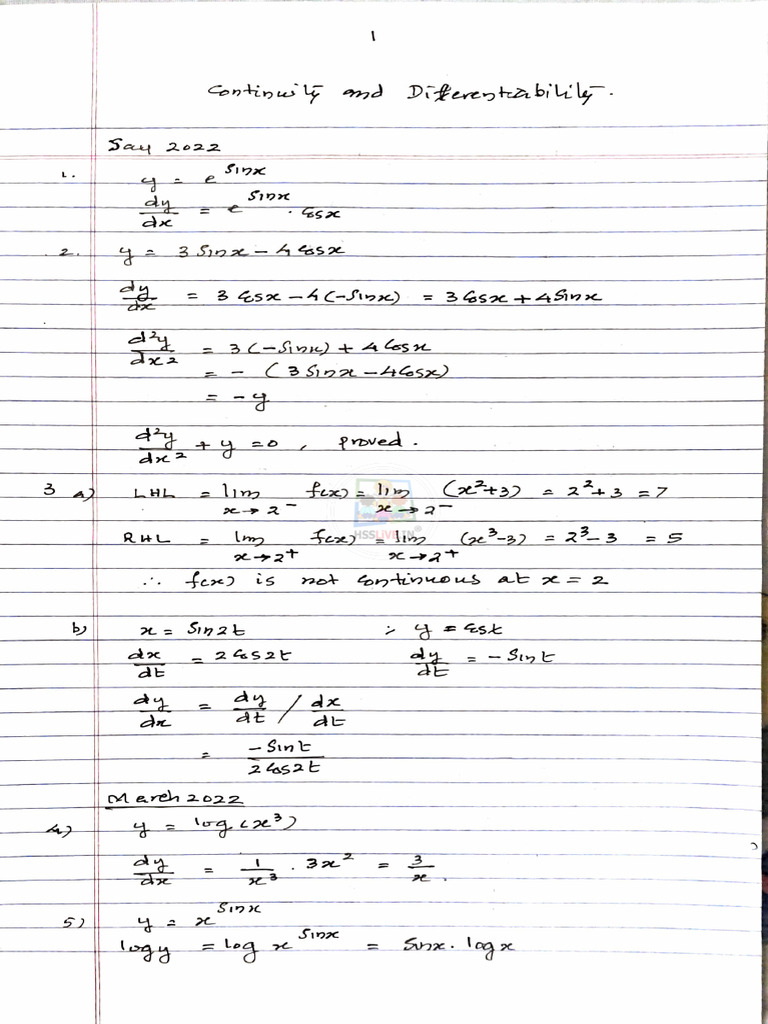 1
Continuity and Differentiability.
Say 2022
1. y = e^sinx
dy/dx = e^sinx . cosx
2. y = 3 sinx - 4 cosx
dy/dx = 3 cosx - 4(-sinx) = 3 cosx + 4 sinx
d²y/dx² = 3(-sinx) + 4 cosx
= - (3 sinx - 4 cosx)
= - y
d²y/dx² + y = 0 , proved.
3 a) LHL = lim x→2⁻ f(x) = lim x→2⁻ (x²+3) = 2²+3 = 7
RHL = lim x→2⁺ f(x) = lim x→2⁺ (x³-3) = 2³-3 = 5
HSSLIVE.IN®
∴ f(x) is not continuous at x = 2
b) x = sin2t ; y = cost
dx/dt = 2 cos2t dy/dt = - sint
dy/dx = dy/dt / dx/dt
= -sint / 2 cos2t
March 2022
4) y = log(x³)
dy/dx = 1/x³ . 3x² = 3/x .
5) y = x^sinx
logy = log x^sinx = sinx . logx